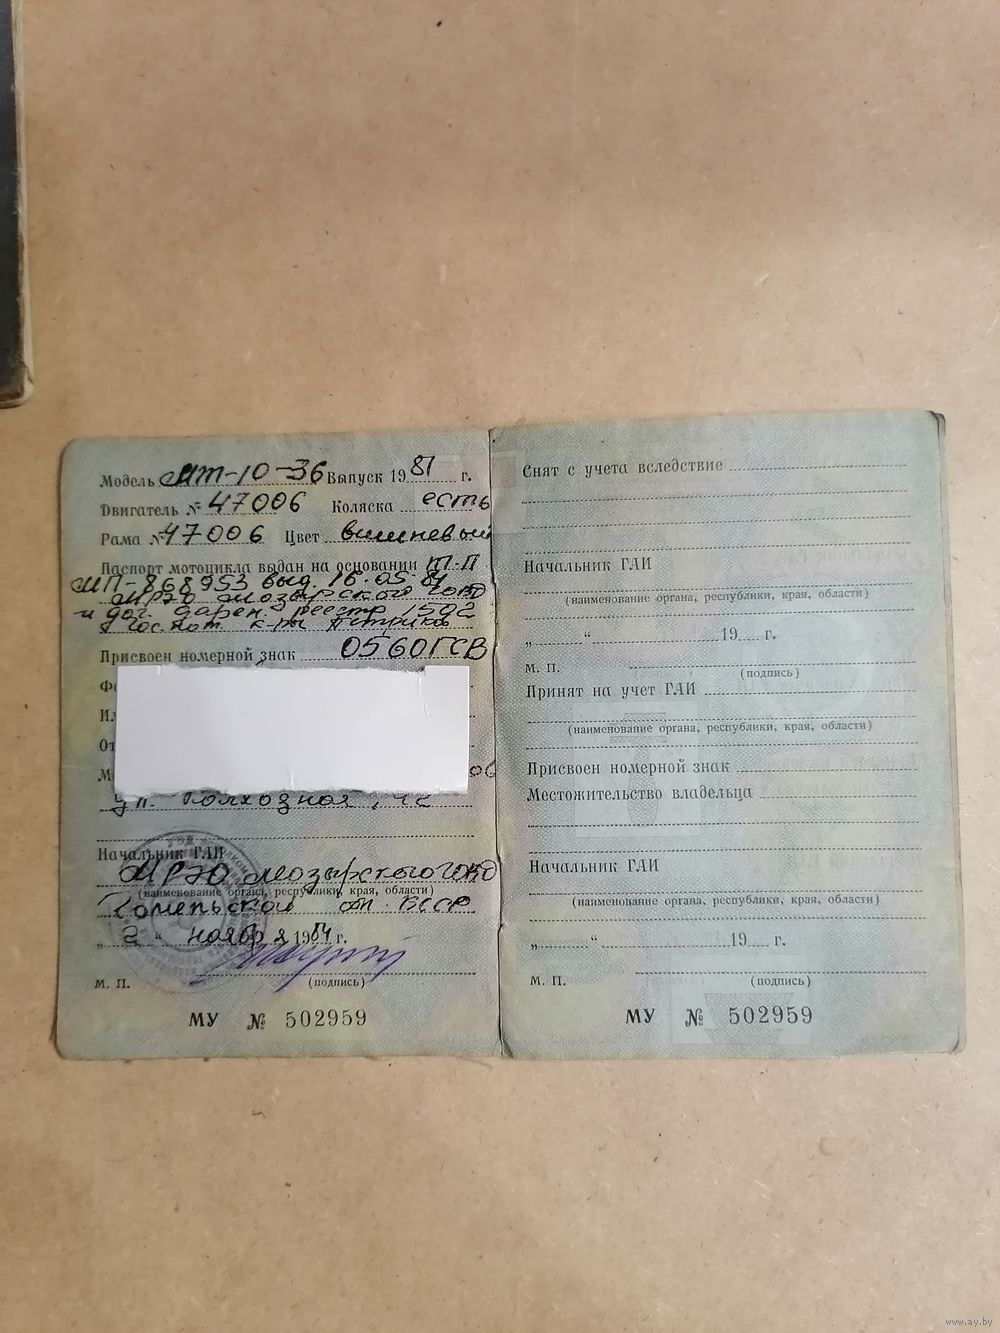 Модель МТ-10-36 Выпуск 1981 г.
Двигатель № 47006 Коляска есть
Рама № 47006 Цвет вишневый
Паспорт мотоцикла выдан на основании Т.П
МП-868953 выд. 16.05.81
МРЭО Мозырского ГОВД
и дог. дарен. реестр 1592
Гос. нот. к-ры
Присвоен номерной знак 0560ГСВ
ул. Колхозная, 42
Начальник ГАИ
МРЭО Мозырского ГОВД
(наименование органа, республики, края, области)
Гомельской обл. БССР
„ 2 “ ноября 1984 г.
М. П. (подпись)
МУ № 502959
Снят с учета вследствие
Начальник ГАИ
(наименование органа, республики, края, области)
„ “ 19 г.
М. П. (подпись)
Принят на учет ГАИ
(наименование органа, республики, края, области)
Присвоен номерной знак
Местожительство владельца
Начальник ГАИ
(наименование органа, республики, края, области)
„ “ 19 г.
М. П. (подпись)
МУ № 502959
www.ay.by